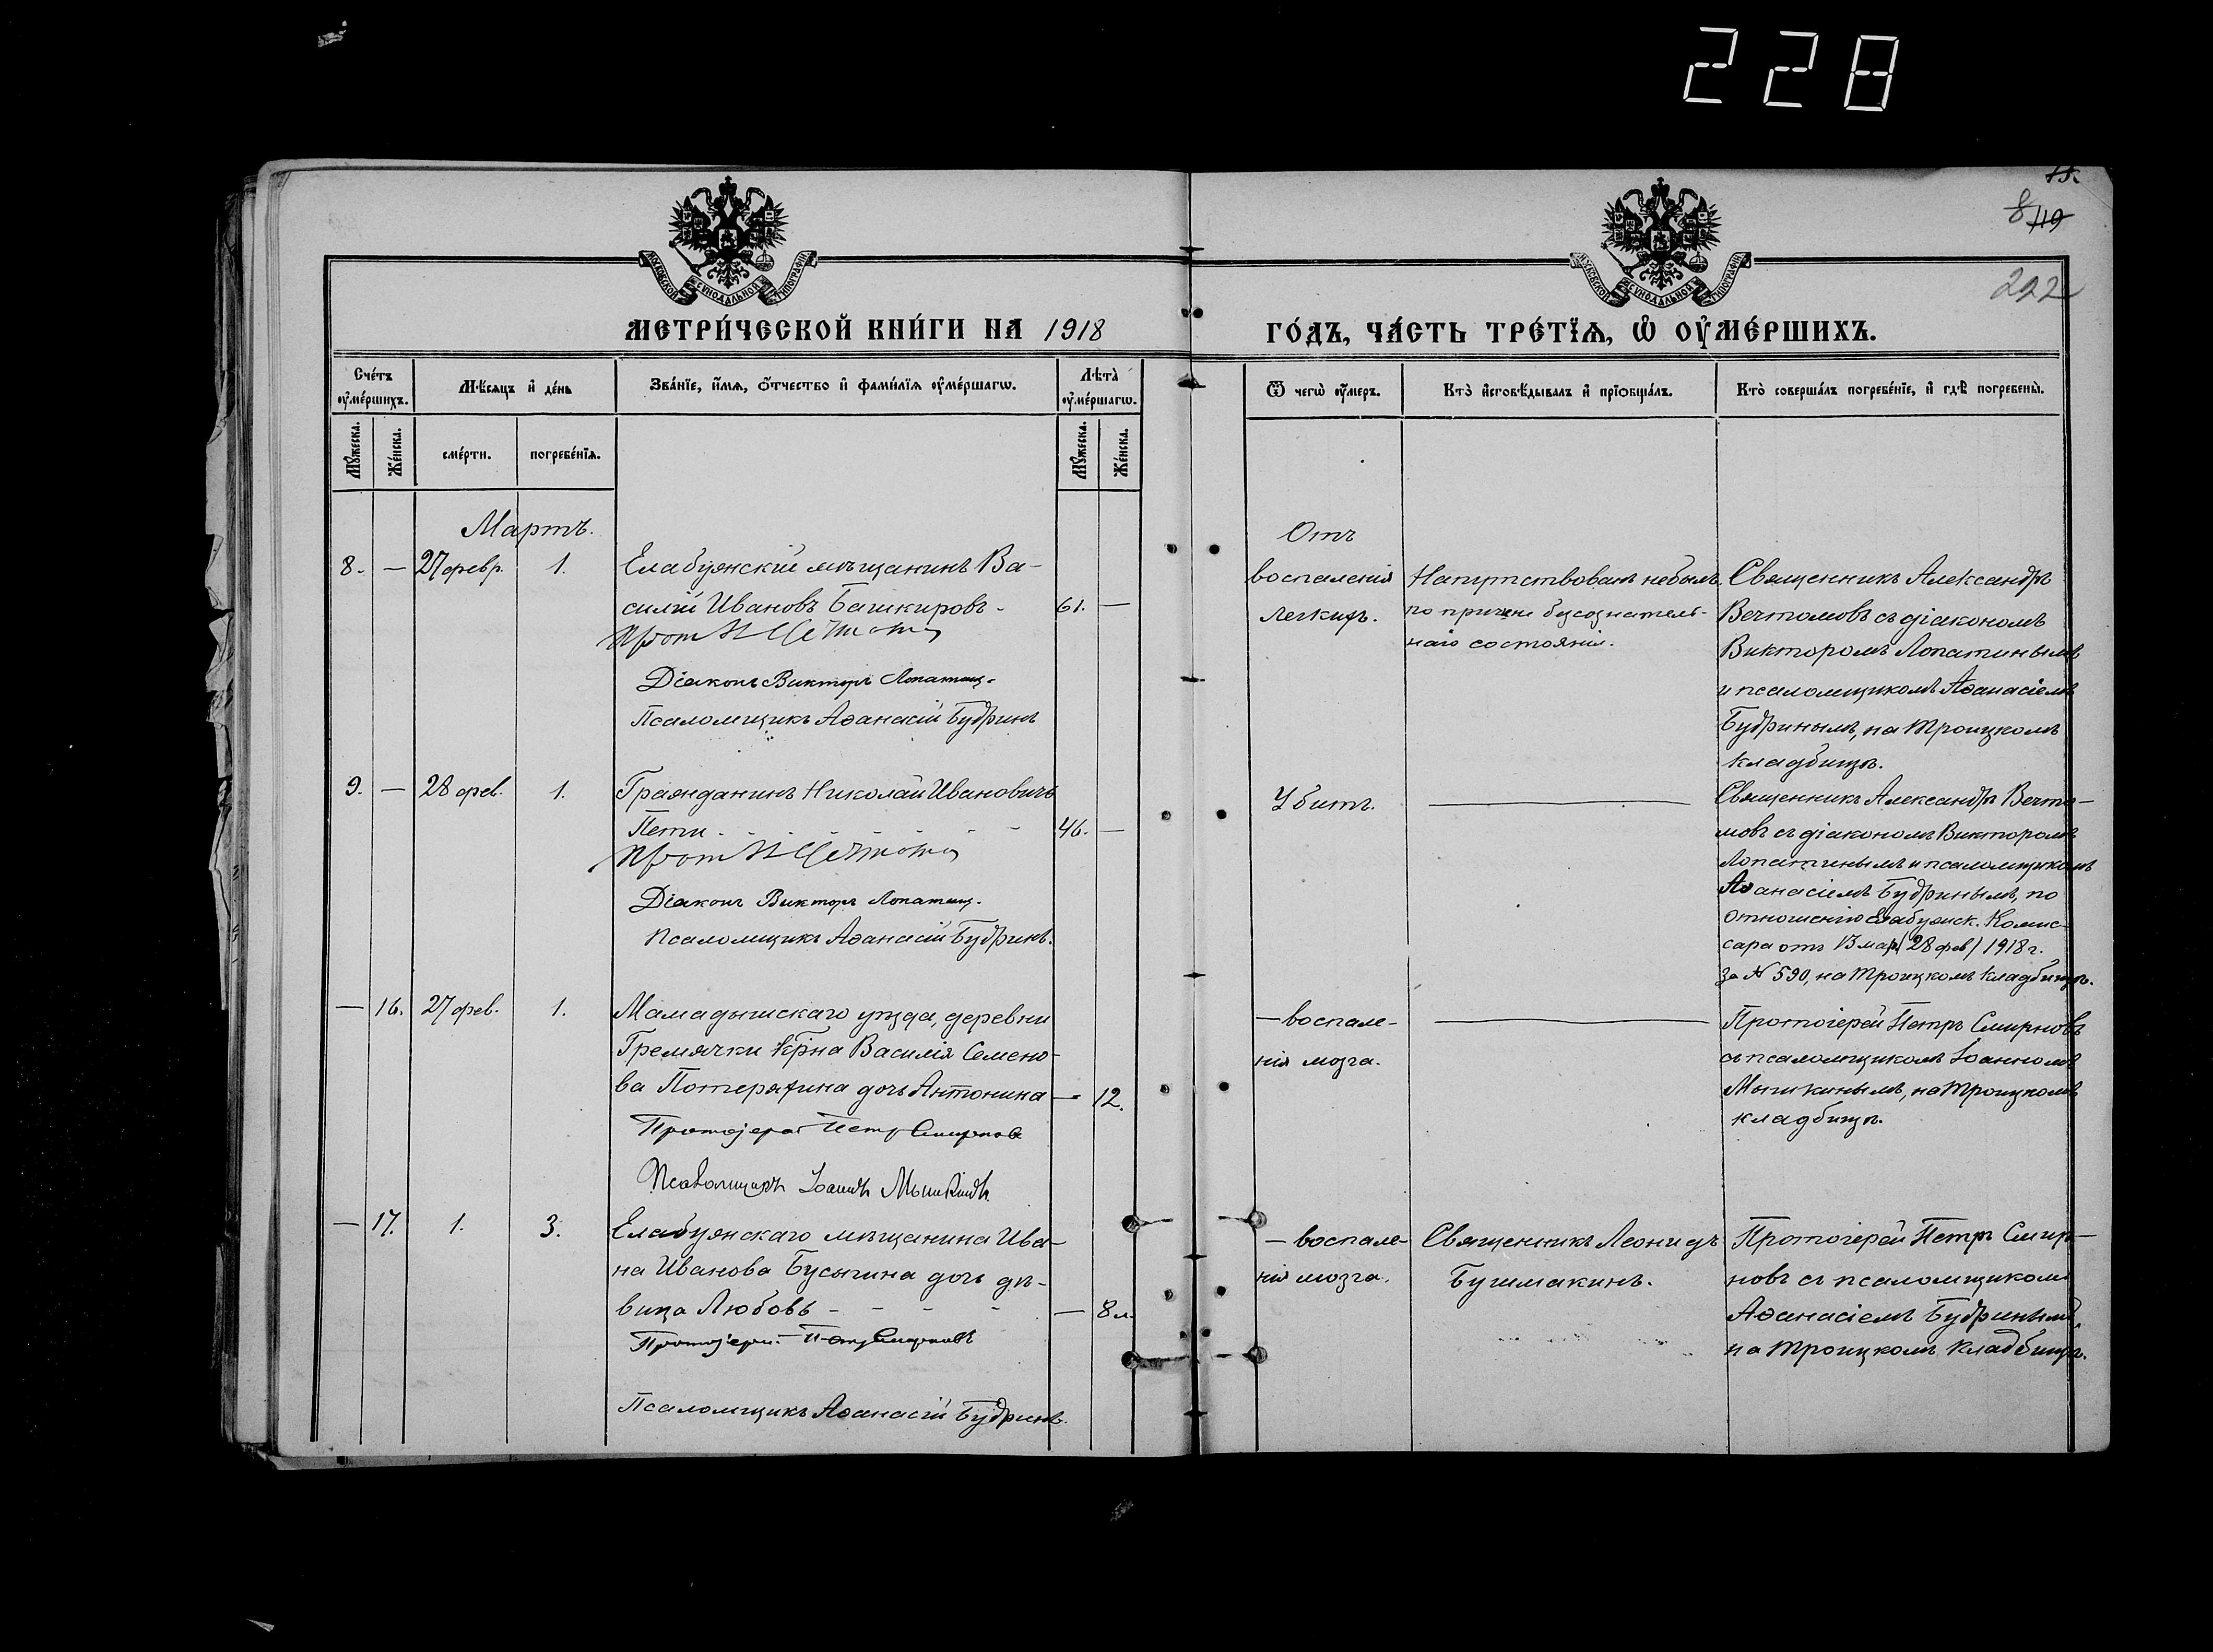 228
15.
8 119
222
МОСКОВСКОЙ СѴНОДАЛЬНОЙ ТИПОГРАФІИ
МОСКОВСКОЙ СѴНОДАЛЬНОЙ ТИПОГРАФІИ
МЕТРИ́ЧЕСКОЙ КНИ́ГИ НА 1918
ГО́ДЪ, ЧА́СТЬ ТРЕ́ТЇѦ, Ѡ҆ ОУ҆МЕ́РШИХЪ.
Сче́тъ оу҆ме́ршихъ.
Мꙋ́жеска.
Же́нска.
Мѣ́сяцъ и҆ де́нь
сме́рти.
погребе́нїѧ.
Зва́нїе, и҆́мѧ, ѻ҆́тчество и҆ фами́лїѧ оу҆ме́ршагѡ.
Лѣ́та оу҆ме́ршагѡ.
Мꙋ́жеска.
Же́нска.
Ѿ чегѡ̀ оу҆́меръ.
Кто̀ и҆сповѣ́дывалъ и҆ прїѡбща́лъ.
Кто̀ соверша́лъ погребе́нїе, и҆ гдѣ̀ погребены̀.
Мартъ.
8. — 27 февр. 1.
Елабужскій мѣщанинъ Ва-
силій Ивановъ Башкировъ - 61. —
Діаконъ Викторъ Лопатинъ.
Псаломщикъ Аѳанасій Будринъ
Отъ
воспаленія
легкихъ.
Напутствованъ небылъ
по причине безсознатель-
наго состоянія.
Священникъ Александръ
Вечтомовъ съ діакономъ
Викторомъ Лопатинымъ
и псаломщикомъ Аѳанасіемъ
Будринымъ, на Троицкомъ
кладбищѣ.
9. — 28 фев. 1.
Гражданинъ Николай Ивановичъ
Пети - - - - - - 46. —
Діаконъ Викторъ Лопатинъ.
Псаломщикъ Аѳанасій Будринъ.
Убитъ.
—
Священникъ Александръ Вечто-
мовъ съ діакономъ Викторомъ
Лопатинымъ и псаломщикомъ
Аѳанасіемъ Будринымъ, по
отношенію Елабужск. Комис-
сара отъ 13 мар/28 фев/ 1918 г.
за № 590, на Троицкомъ кладбищѣ.
— 16. 27 фев. 1.
Мамадышскаго уѣзда, деревни
Гремячки кр-на Василія Семено-
ва Потеряхина дочь Антонина — 12.
Протоіерей Петръ Смирновъ
Псаломщикъ Іоаннъ Мышкинъ.
— воспале-
нія мозга.
—
Протоіерей Петръ Смирновъ
съ псаломщикомъ Іоанномъ
Мышкинымъ, на Троицкомъ
кладбищѣ.
— 17. 1. 3.
Елабужскаго мѣщанина Ива-
на Иванова Бусыгина дочь дѣ-
вица Любовь - - - - — 8 л.
Протоіерей Петръ Смирновъ
Псаломщикъ Аѳанасій Будринъ.
— воспале-
нія мозга.
Священникъ Леонидъ
Бушмакинъ.
Протоіерей Петръ Смир-
новъ съ псаломщикомъ
Аѳанасіемъ Будринымъ,
на Троицкомъ кладбищѣ.